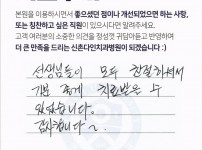 본원을 이용하시면서 좋으셨던 점이나 개선되었으면 하는 사항,
또는 칭찬하고 싶은 직원이 있으시다면 알려주세요.
고객 여러분의 소중한 의견을 정성껏 귀담아듣고 반영하여
더 큰 만족을 드리는 신촌다인치과병원이 되겠습니다 :)
선생님들이 모두 친절하셔서
기분 좋게 치료받을 수
있었습니다.
감사합니다~